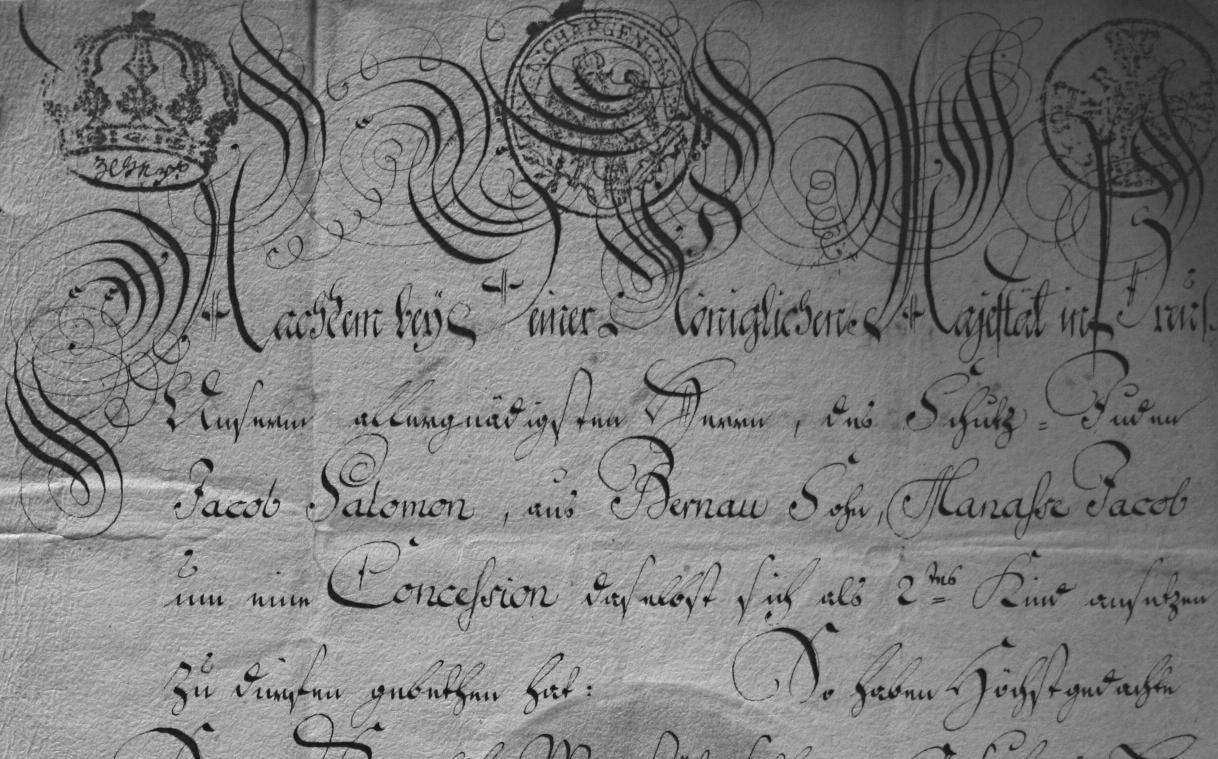 Nachdem bey Seiner Königlichen Majestät in Preuß.
Unserm allergnädigsten Herrn, des Schutz=Juden
Jacob Salomon, aus Bernau Sohn, Manasse Jacob
um eine Concession daselbst sich als 2tes Kind ansetzen
zu dürffen gebethen hat: So haben Höchstgedachte